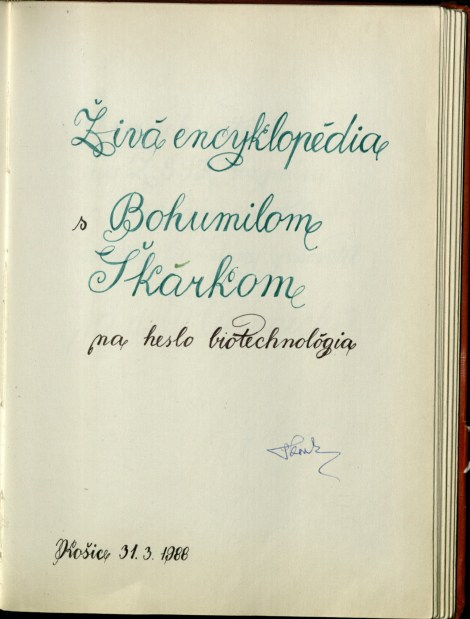 Živá encyklopédia
s Bohumilom
Škárkom
na heslo biotechnológia
Košice 31. 3. 1988